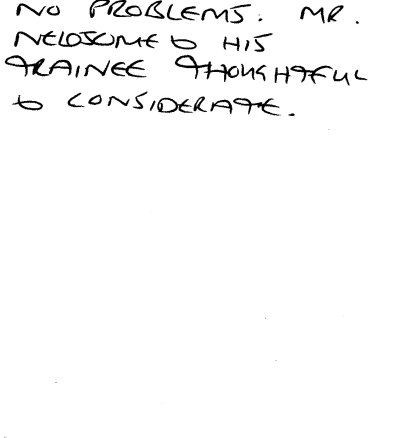 NO PROBLEMS. MR.
NELDSOME & HIS
TRAINEE THOUGHTFUL
& CONSIDERATE.